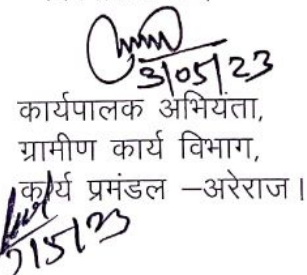 3/05/23
कार्यपालक अभियंता,
ग्रामीण कार्य विभाग,
कार्य प्रमंडल –अरेराज।